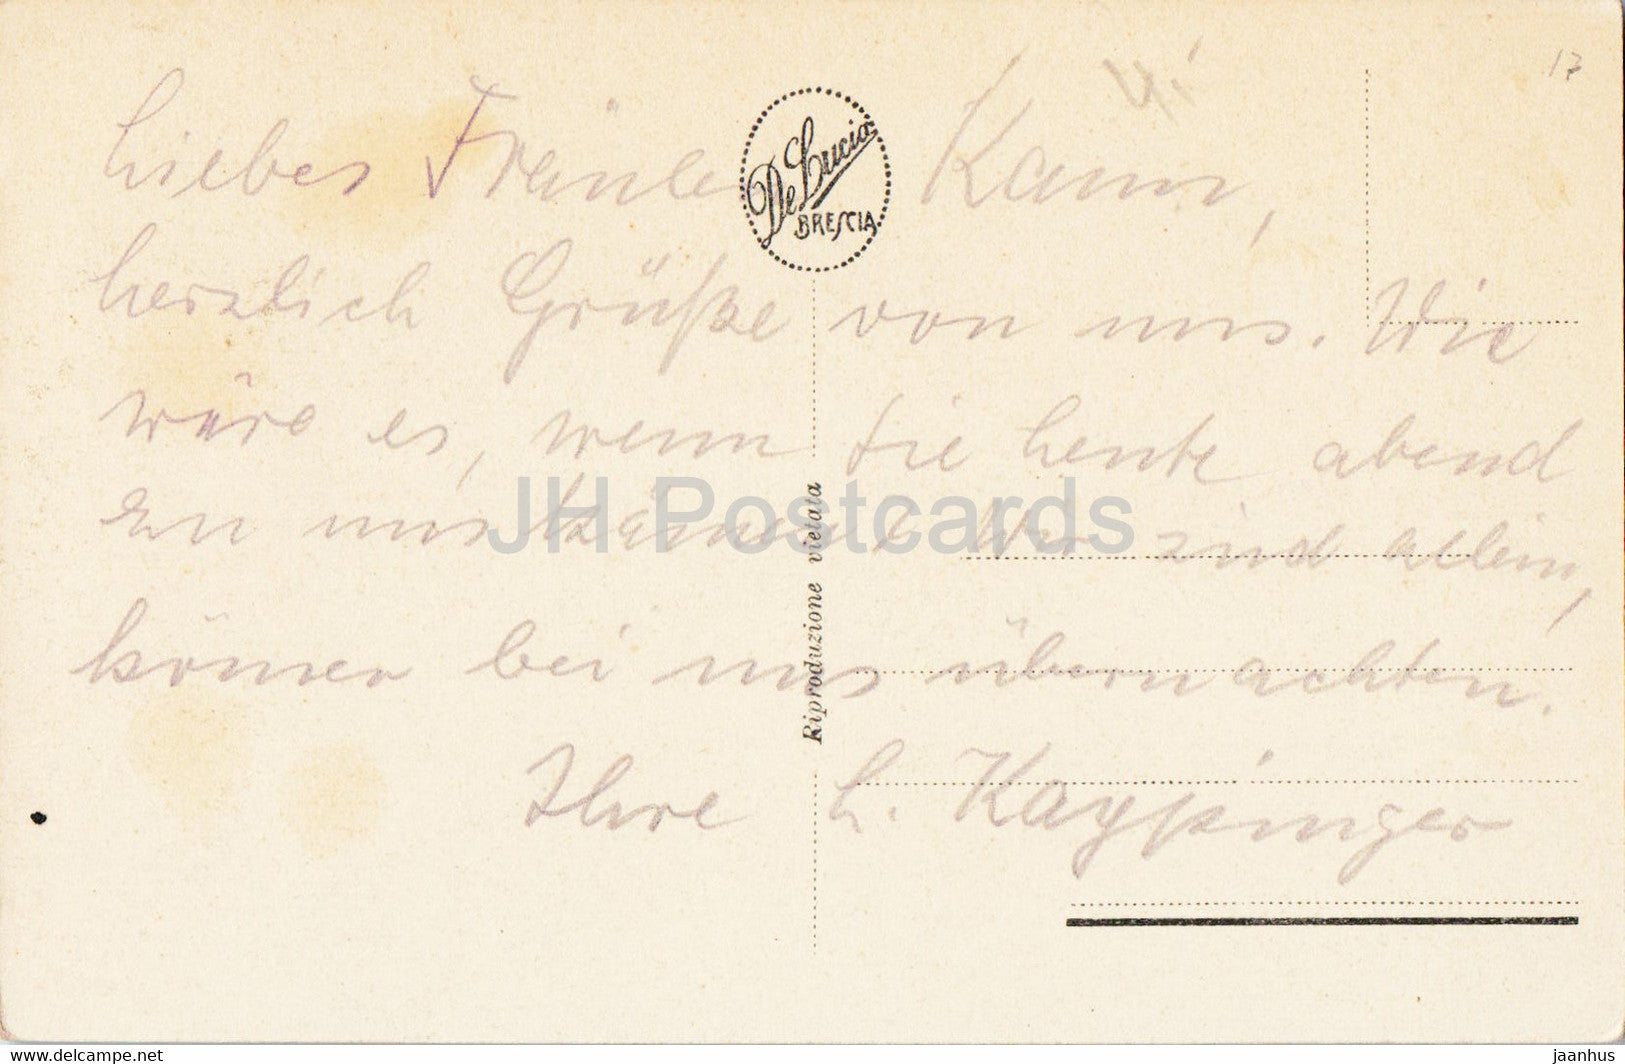 17
Liebes Fräulein Kann,
De Lucia
BRESCIA
herzlich Grüße von uns. Wie
wäre es, wenn Sie heute abend
zu uns kämen? Wir sind allein,
können bei uns übernachten.
Ihre L. Kaypinger
Riproduzione vietata
JH Postcards
www.delcampe.net
jaanhus